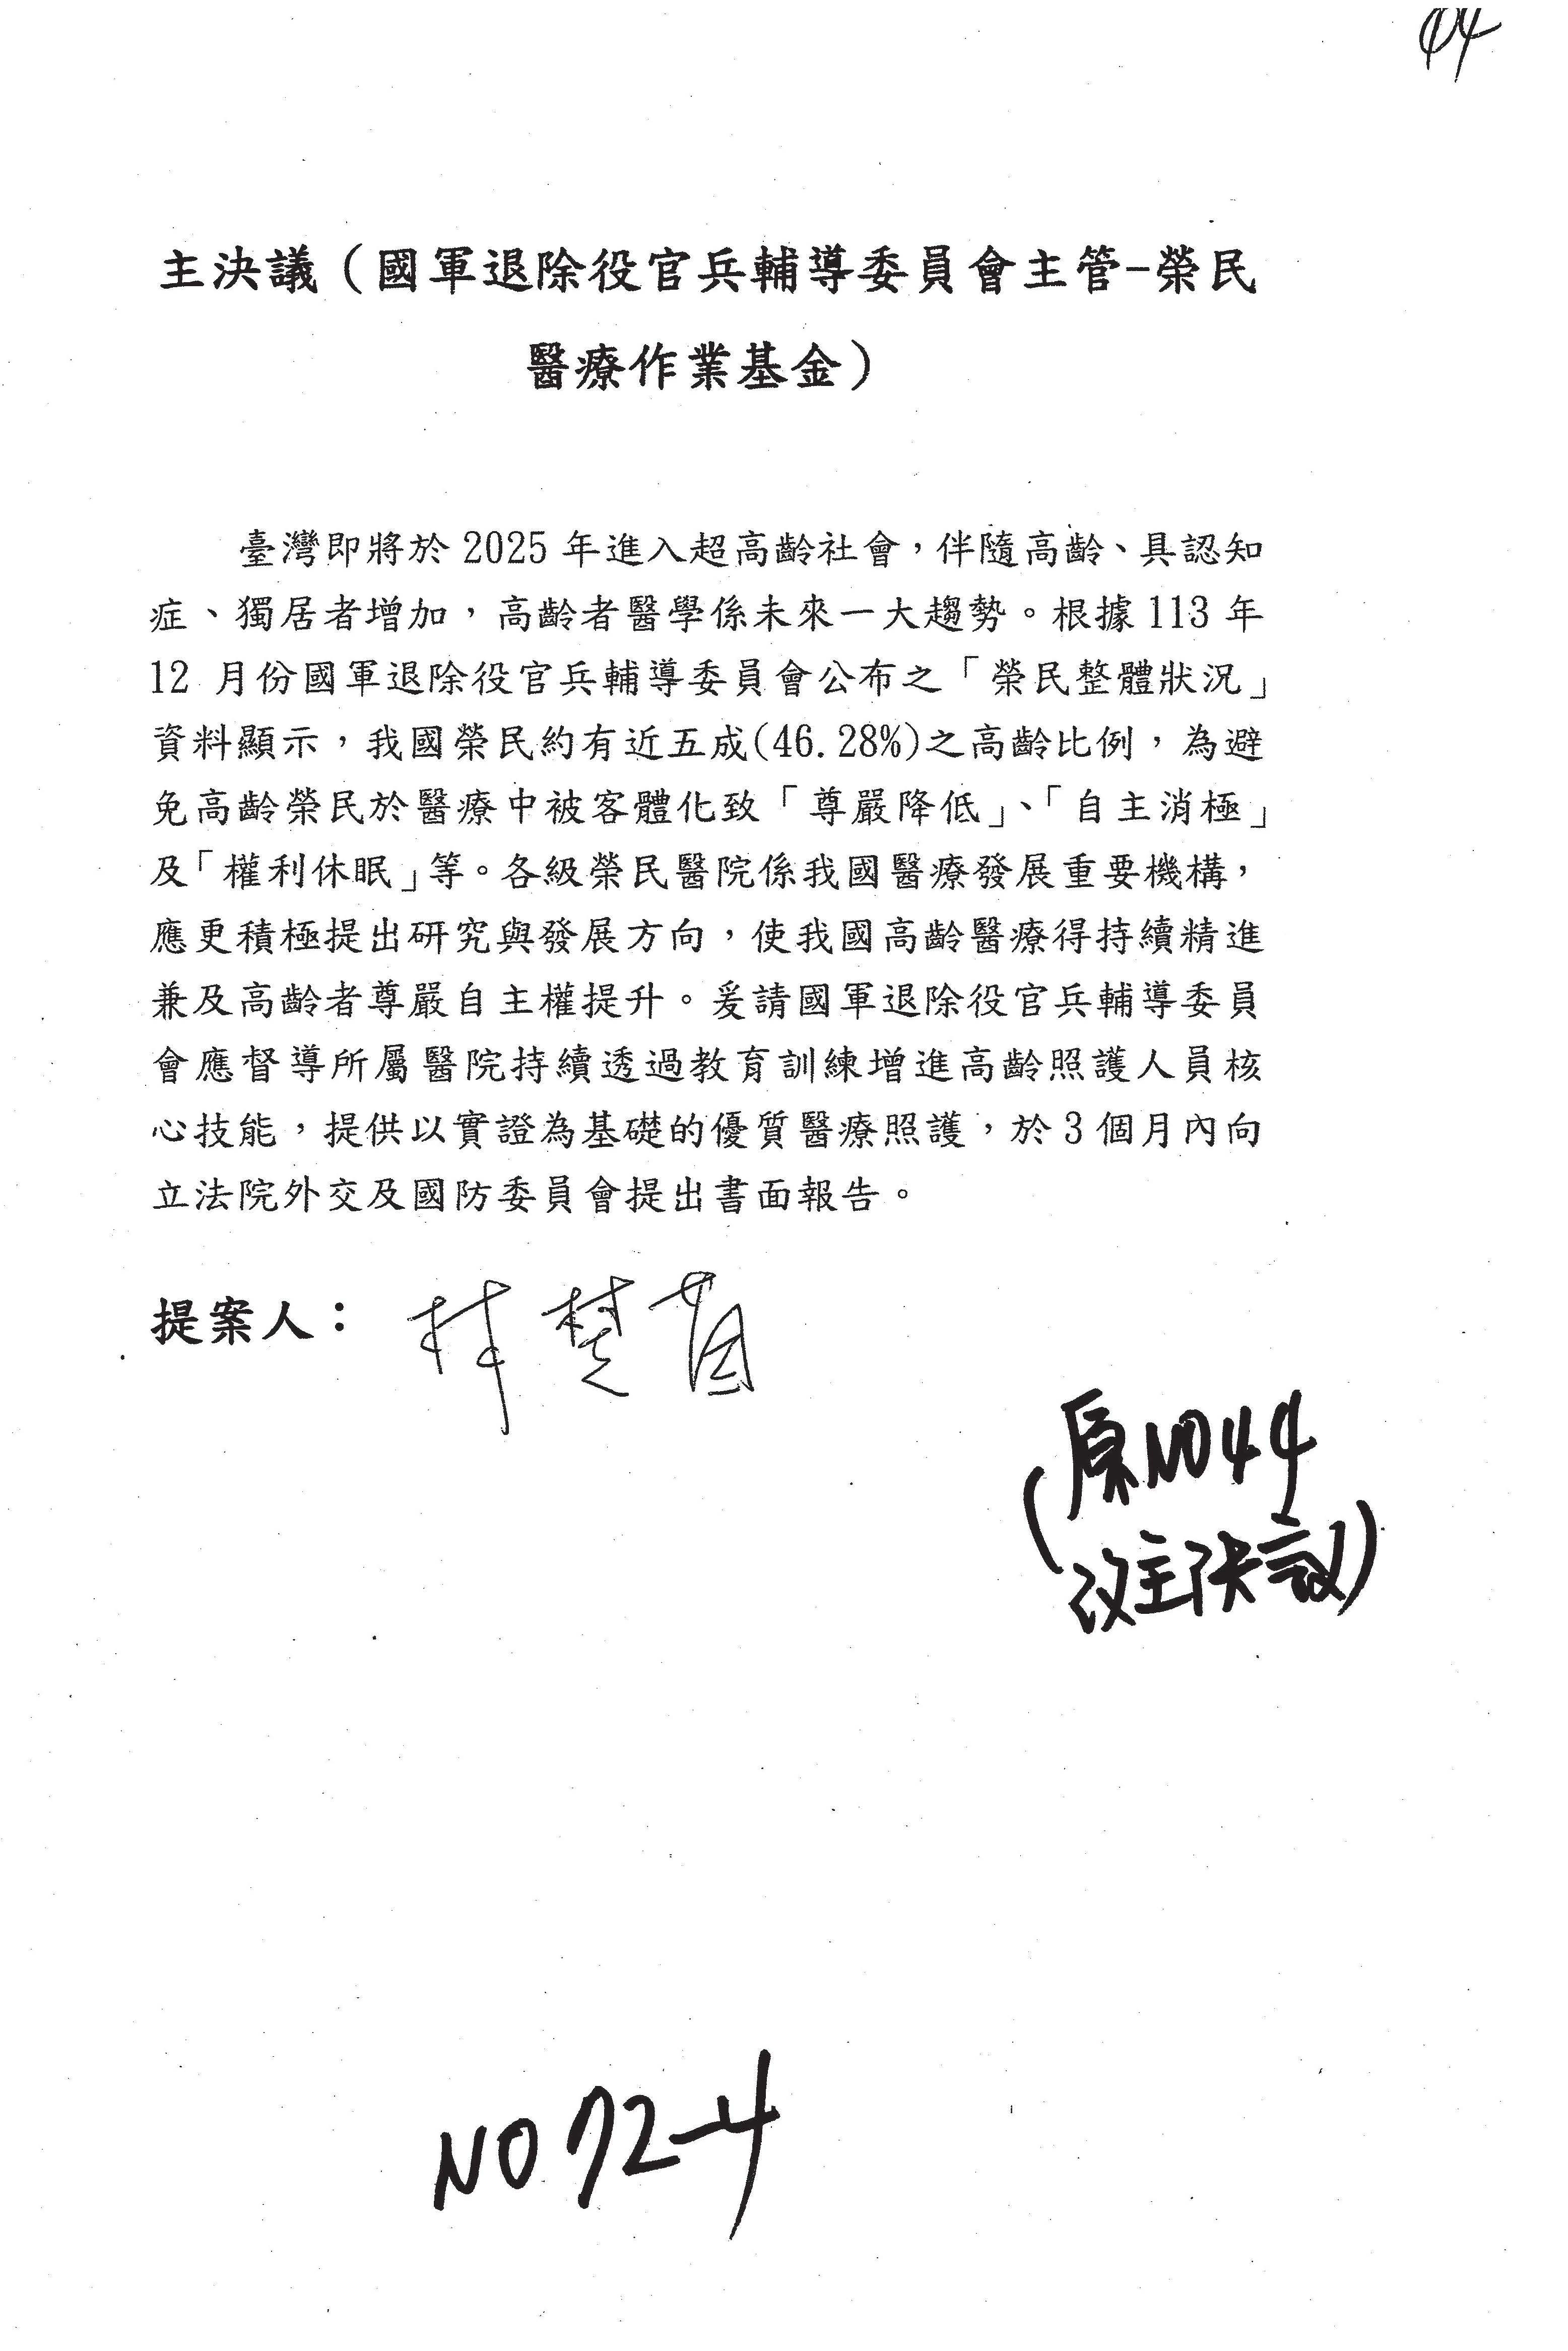 44
主決議（國軍退除役官兵輔導委員會主管-榮民
醫療作業基金）
臺灣即將於 2025 年進入超高齡社會，伴隨高齡、具認知
症、獨居者增加，高齡者醫學係未來一大趨勢。根據 113 年
12 月份國軍退除役官兵輔導委員會公布之「榮民整體狀況」
資料顯示，我國榮民約有近五成(46.28%)之高齡比例，為避
免高齡榮民於醫療中被客體化致「尊嚴降低」、「自主消極」
及「權利休眠」等。各級榮民醫院係我國醫療發展重要機構，
應更積極提出研究與發展方向，使我國高齡醫療得持續精進
兼及高齡者尊嚴自主權提升。爰請國軍退除役官兵輔導委員
會應督導所屬醫院持續透過教育訓練增進高齡照護人員核
心技能，提供以實證為基礎的優質醫療照護，於 3 個月內向
立法院外交及國防委員會提出書面報告。
提案人： 林楚茵
(原NO44
改主決議)
NO 72-4